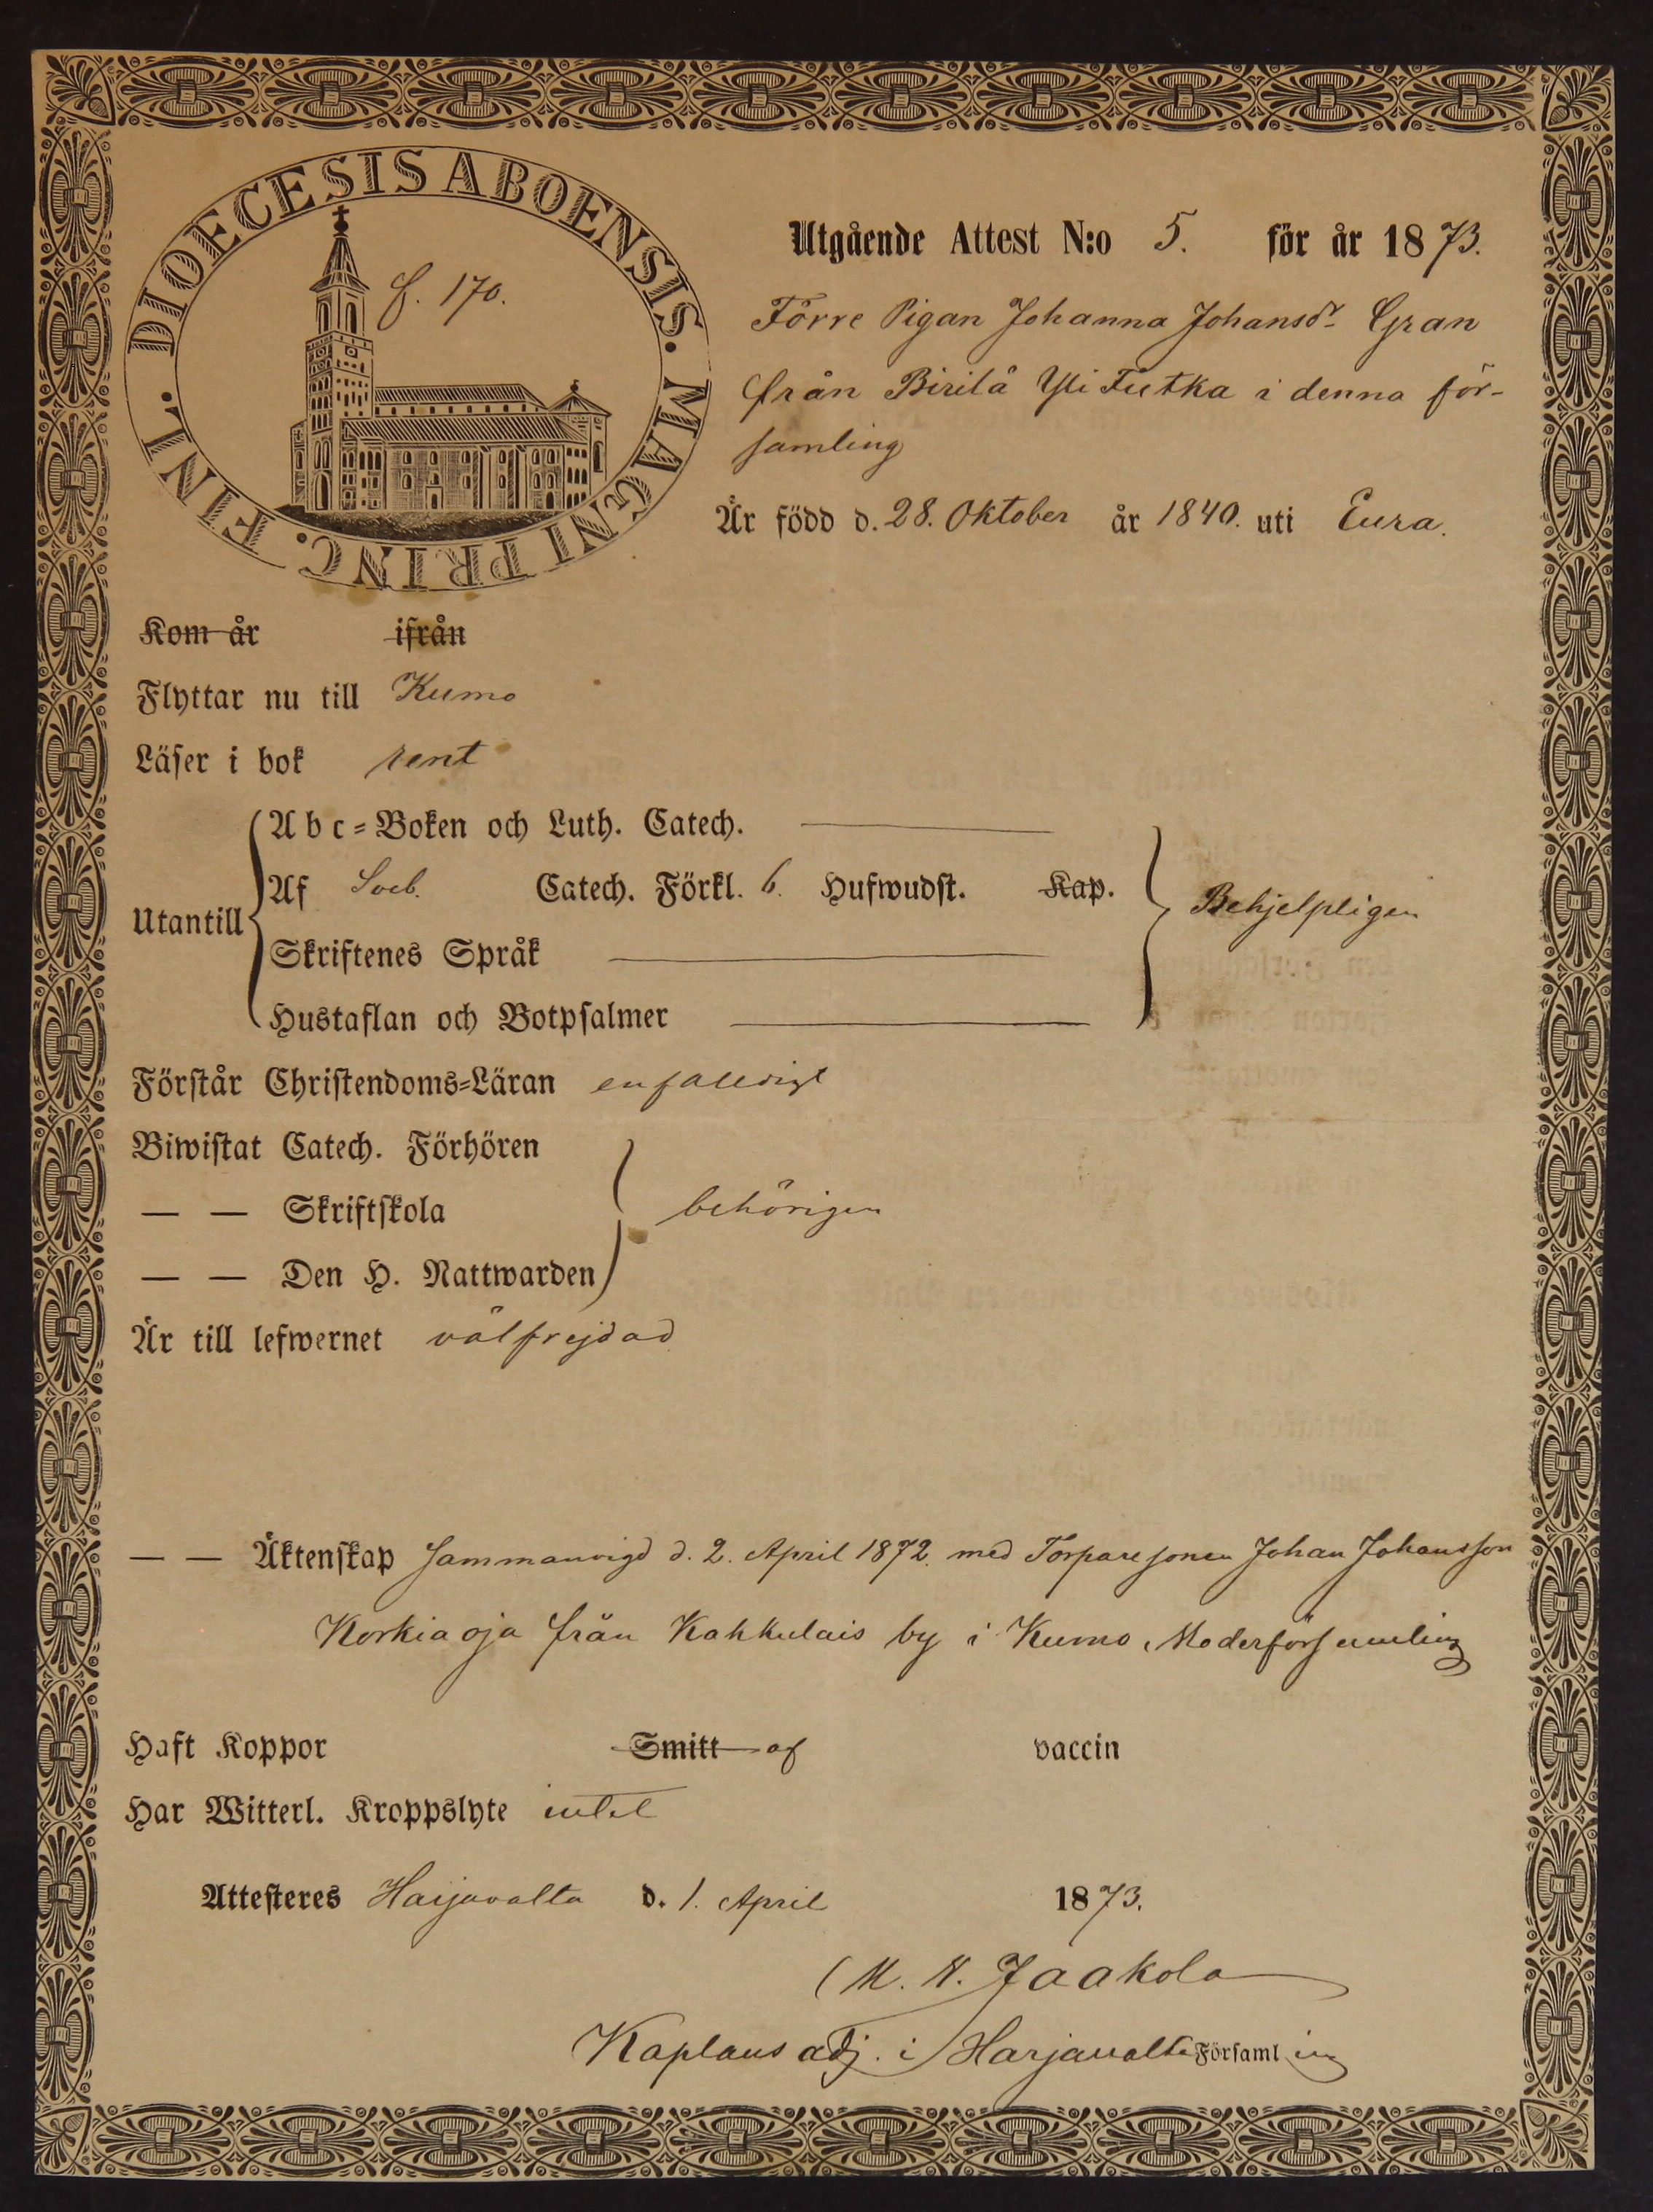 DIOECESIS ABOENSIS. MAGNI PRINC. FINL.
f. 170.
Utgående Attest N:o 5. för år 1873.
Förre Pigan Johanna Johansdr Gran
från Birilä Yli Tutka i denna för-
samling
Är född d. 28. Oktober år 1840. uti Eura.
Kom år ifrån
Flyttar nu till Kumo
Läser i bok rent
Utantill
Abc-Boken och Luth. Catech.
Af Sveb. Catech. Förkl. 6. Hufwudst. Kap.
Behjelpligen
Skriftenes Språk
Hustaflan och Botpsalmer
Förstår Christendoms-Läran enfalldigt
Biwistat Catech. Förhören
— — Skriftskola
behörigen
— — Den H. Nattwarden
Är till lefwernet välfrejdad
— — Äktenskap Sammanvigd d. 2. April 1872. med Torparesonen Johan Johansson
Korkiaoja från Kahkulais by i Kumo Moderförsamling
Haft Koppor Smitt af vaccin
Har Witterl. Kroppslyte intet
Attesteres Harjavalta d. 1. April 1873.
M. N. Jaakola
Kaplans adj. i Harjavalta Församling